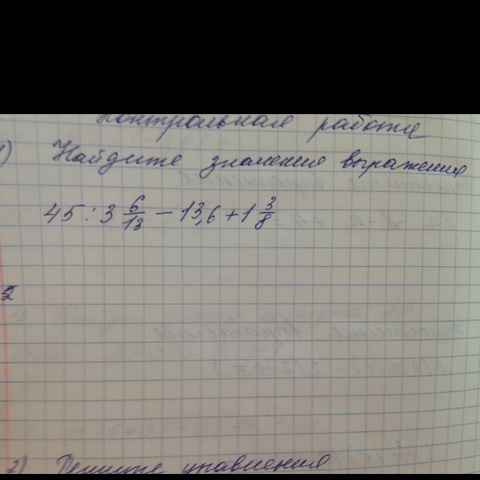 Контрольная работа
1) Найдите значения выражения
45 : 3 6/13 − 13,6 + 1 3/8
2
2) Решите уравнения